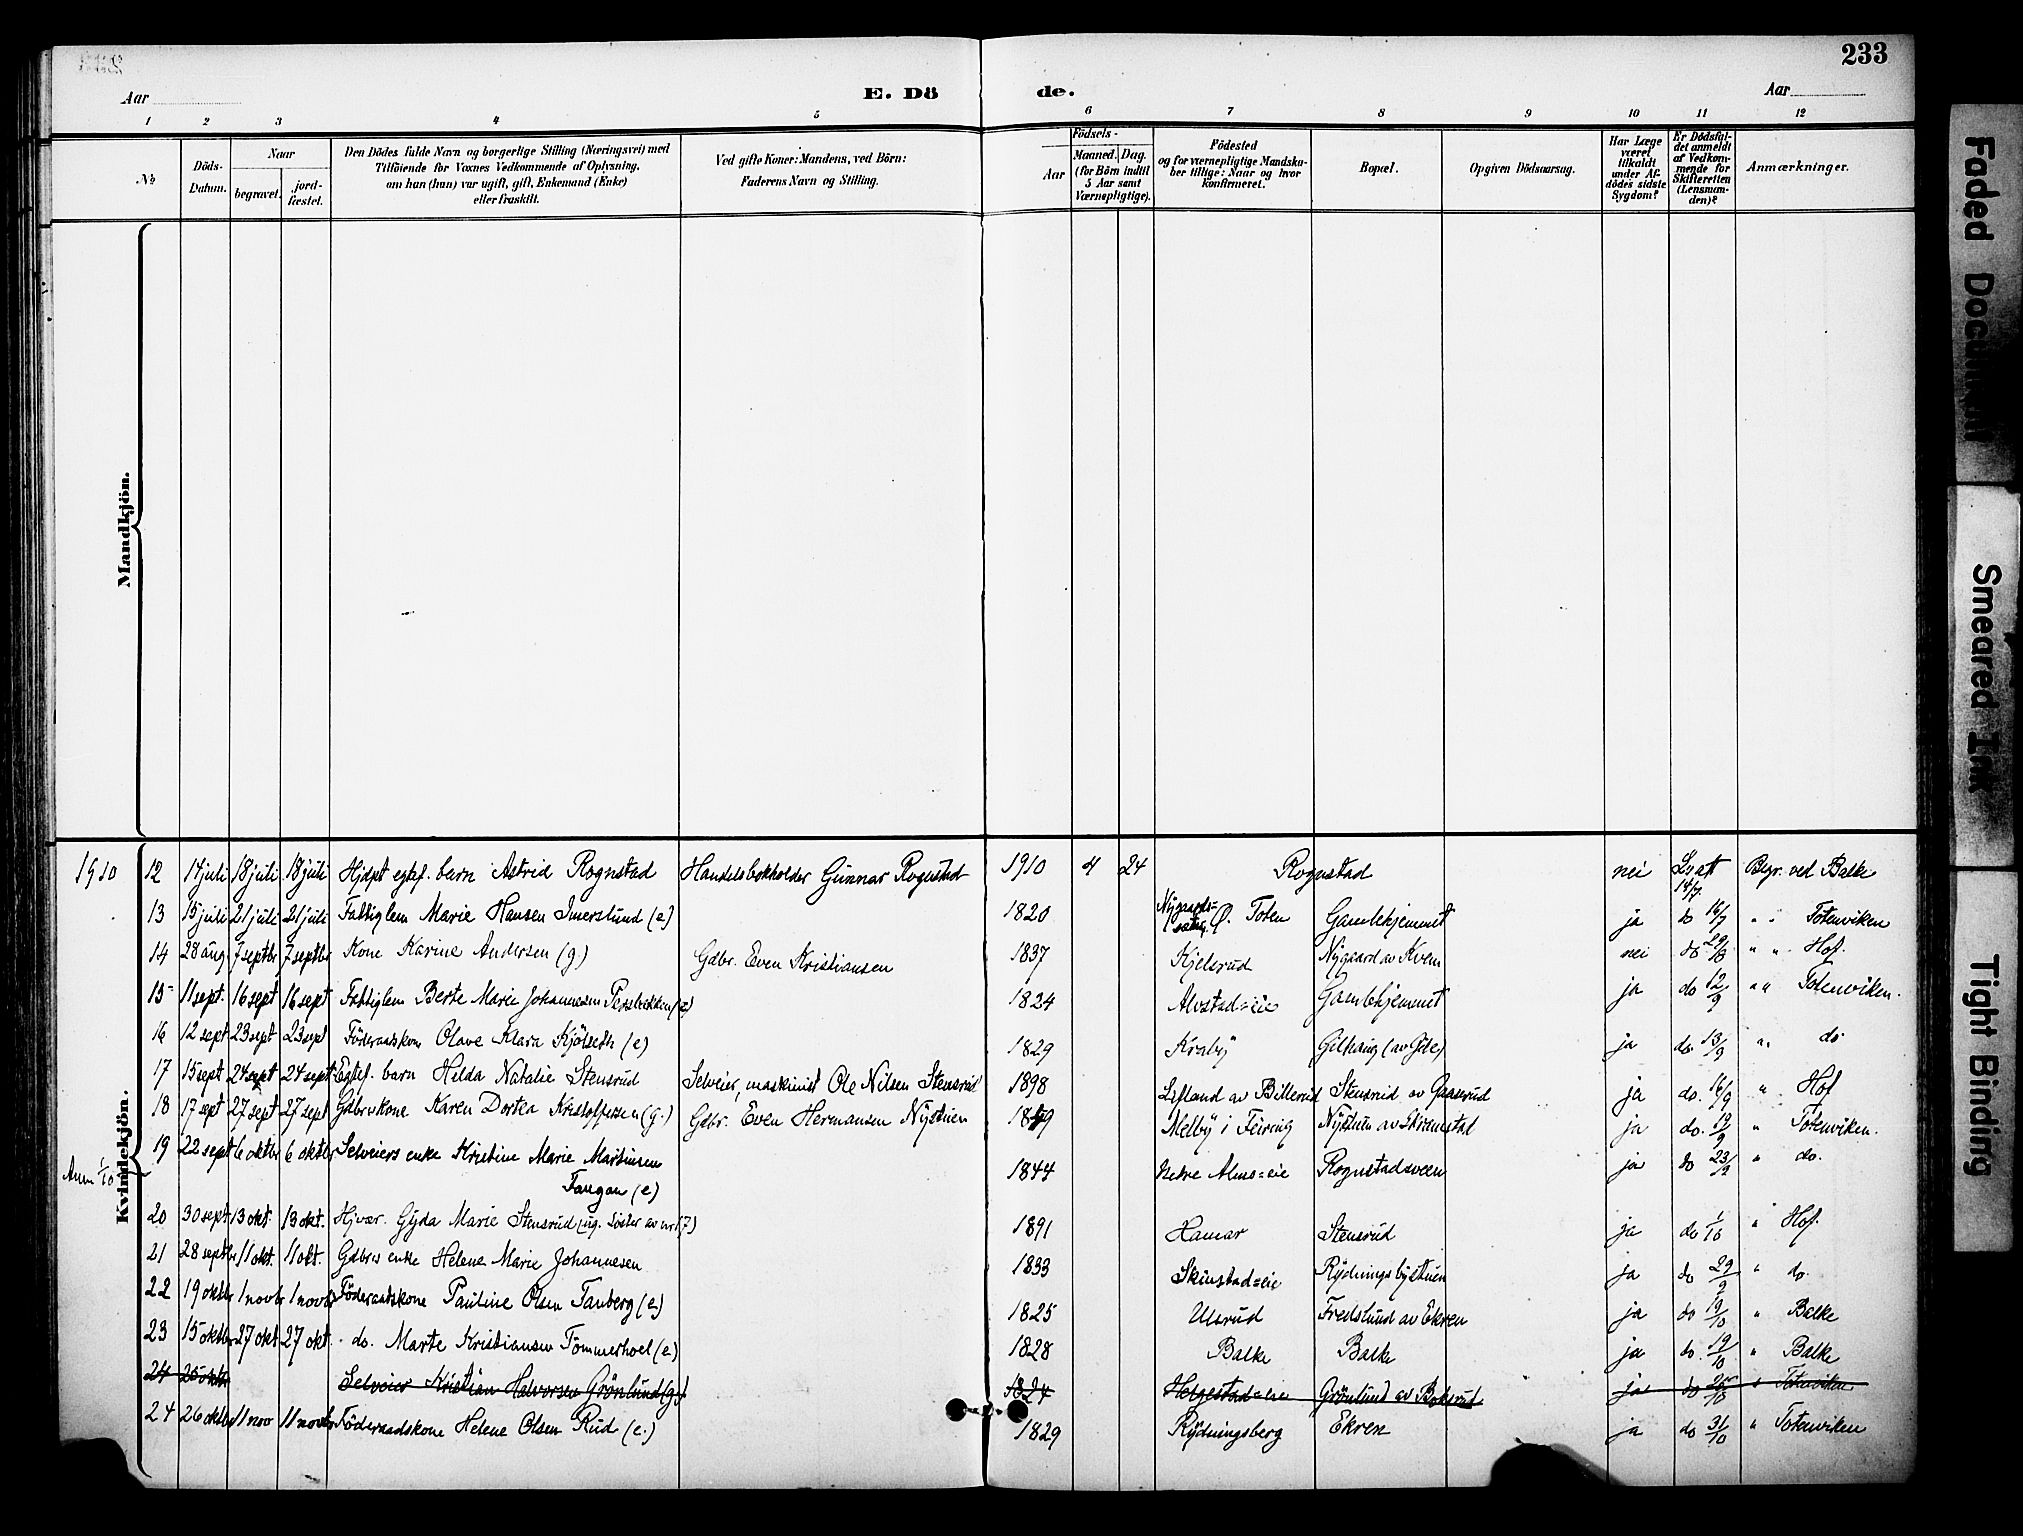 233
Aar
E. Dö de.
Aar
1 2 3 4 5 6 7 8 9 10 11 12
№
Döds-Datum.
Naar
begravet.
jord-fæstet.
Den Dödes fulde Navn og borgerlige Stilling (Næringsvei) med
Tilföiende for Voxnes Vedkommende af Oplysning,
om han (hun) var ugift, gift, Enkemand (Enke)
eller fraskilt.
Ved gifte Koner: Mandens, ved Börn:
Faderens Navn og Stilling.
Födsels-
Aar
Maaned. Dag.
(for Börn indtil
5 Aar samt
Værnepligtige).
Födested
og for værnepligtige Mandska-
ber tillige: Naar og hvor
konfirmeret.
Bopæl.
Opgiven Dödsaarsag.
Har Læge
været
tilkaldt
under Af-
dödes sidste
Sygdom?
Er Dödsfal-
det anmeldt
af Vedkom-
mende for
Skifteretten
(Lensman-
den)?
Anmærkninger.
Mandkjön.
Kvindekjön.
1910 12 14 juli 18 juli 18 juli Hjdpt egtef. barn Astrid Rognstad Handelsbokholder Gunnar Rognstad 1910 4 24 Rognstad nei 14/7 Begr. ved Balke
13 15 juli 21 juli 21 juli Fattiglem Marie Hansen Imerslund (e) 1820 Ø. Toten Gamlehjemmet ja do 16/7 " " Totenviken
14 28 aug 7 septbr 7 septbr Kone Karine Andersen (g.) Gdbr. Even Kristiansen 1837 Kjelsrud Nygaard av Kvem nei do 29/8 " " Hof.
15 11 sept. 16 sept 16 sept Fattiglem Berte Marie Johannesen (e) 1824 Alvstad=eie Gamlehjemmet ja do 12/9 " " Totenviken.
16 12 sept 23 sept 23 sept Föderaadskone Olave Klara Kjölseth (e) 1829 Kraby Gilhaug ja do. 13/9 " " do
17 15 sept 24 sept 24 sept Egtef. barn Hilda Natalie Stensrud Selveier, maskinist Ole Nilsen Stensrud 1898 Lifland av Billerud Stensrud av Gaasrud ja do. 16/9 " Hof
18 17 sept 27 sept 27 sept Gdbrskone Karen Dortea Kristoffersen (g.) Gdbr. Even Hermansen Nystuen Melby i Feiring Nystuen av Skinnestad ja do. 19/9 " Totenviken.
19 22 sept 6 oktbr 6 oktbr Selveiers enke Kristine Marie Martinsen
Faugan (e) 1844 Nedre Alm=eie Rognstadsveen ja do 23/9 " do.
Anm 1/10
20 30 sept 13 okt. 13 okt. Hjvær. Gyda Marie Stensrud (ug. söster av nr 17) 1891 Hamar Stensrud ja do 1/10 " Hof.
21 28 septbr 11 okt. 11 okt. Gdbrs enke Helene Marie Johannesen 1833 Skinstad=eie Rydningsbystuen ja do 29/9 " do.
22 19 oktbr 1 novbr 1 novbr Föderaadskone Pauline Olsen Tanberg (e.) 1825 Ulsrud Fredslund av Ekren ja do 19/10 " Balke
23 15 oktbr 27 okt 27 okt. . do. Marte Kristiansen Tömmerhoel (e.) 1828 Balke Balke ja do. 19/10 " Balke
24 25 oktbr Selveier Kristian Halvorsen Grönlund (g.) 1824 Helgestad=eie Grönlund av Boksrud ja do 25/10 " Totenviken
24 26 oktbr 11 nov 11 novbr Föderaadskone Helene Olsen Rud (e.) 1829 Rydningsberg Ekren ja do 31/10 " Totenviken
Faded Document
Smeared Ink
Tight Binding